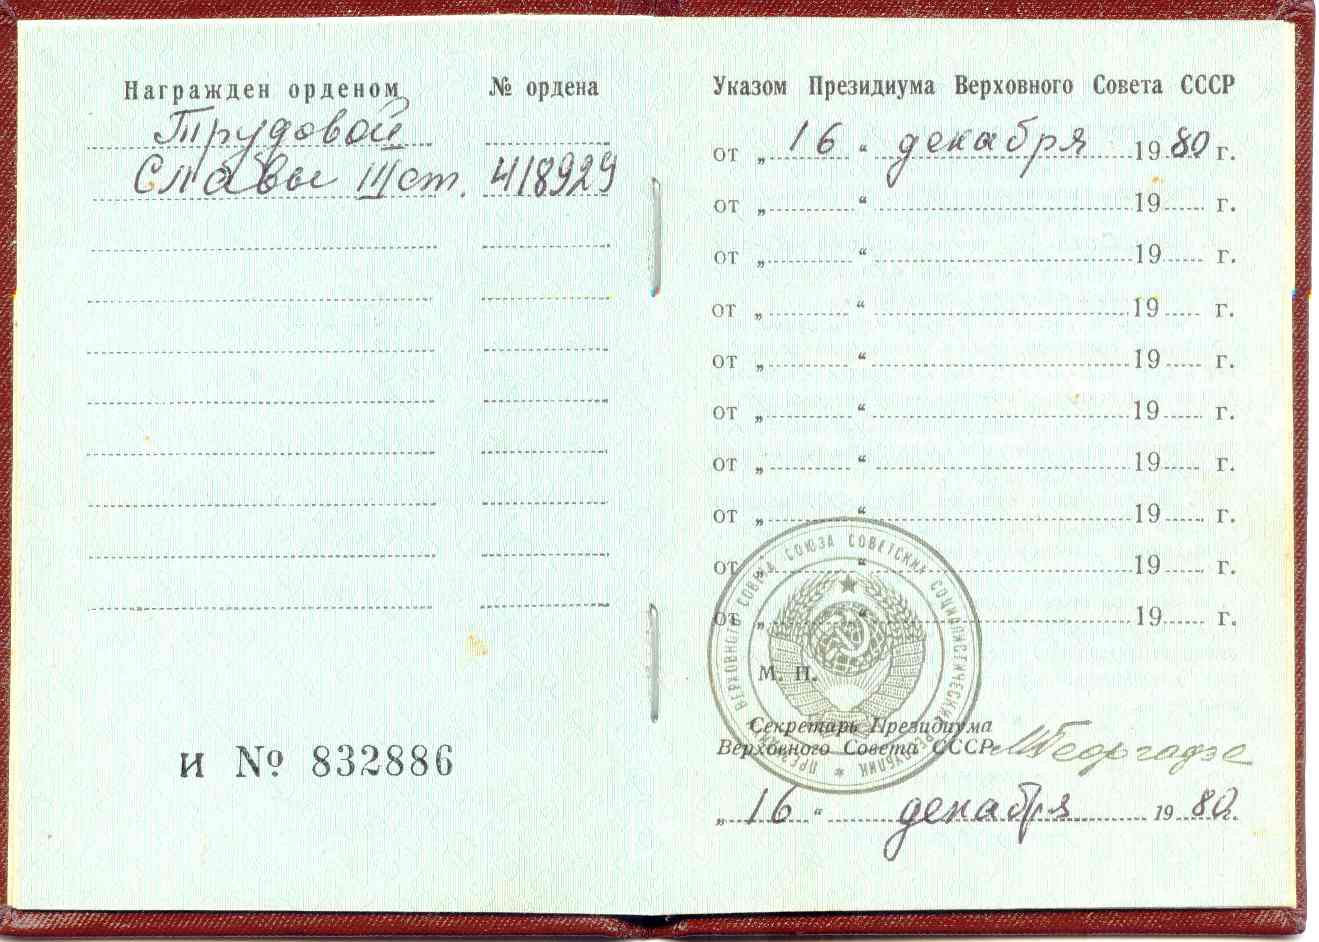 Награжден орденом № ордена
Трудовой
Славы III ст. 418929
и № 832886
Указом Президиума Верховного Совета СССР
от „ 16 “ декабря 1980 г.
от „ “ 19 г.
от „ “ 19 г.
от „ “ 19 г.
от „ “ 19 г.
от „ “ 19 г.
от „ “ 19 г.
от „ “ 19 г.
от „ “ 19 г.
от „ “ 19 г.
ПРЕЗИДИУМ ВЕРХОВНОГО СОВЕТА СОЮЗА СОВЕТСКИХ СОЦИАЛИСТИЧЕСКИХ РЕСПУБЛИК
М. П.
Секретарь Президиума
Верховного Совета СССР МГеоргадзе
„ 16 “ декабря 1980 г.